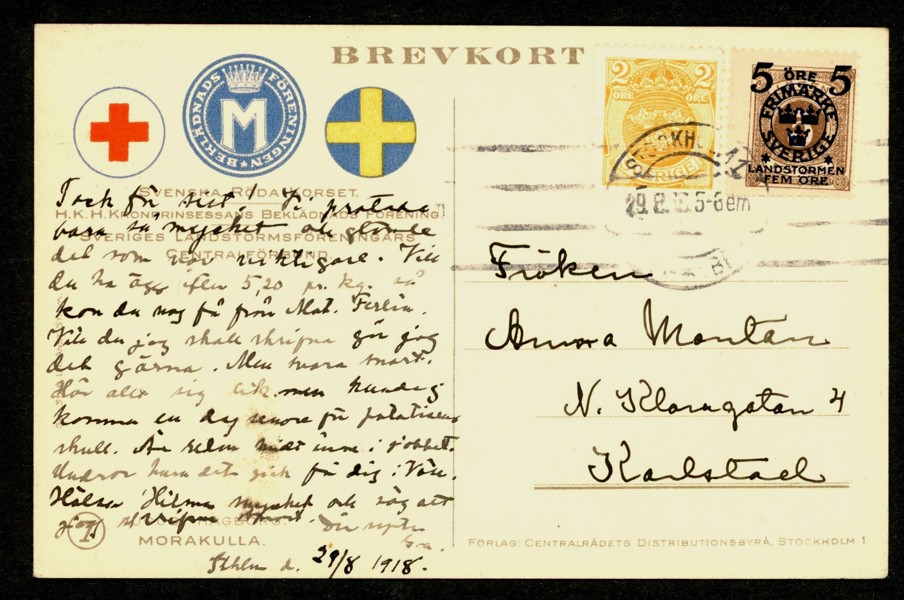 BREVKORT
BEKLÄDNADS FÖRENINGEN
M
2 2
ÖRE ÖRE
SVERIGE
5 ÖRE 5
FRIMÄRKE
SVERIGE
LANDSTORMEN
FEM ÖRE
29.8. 5-6 em
SVENSKA RÖDA KORSET.
H.K.H. KRONPRINSESSANS BEKLÄDNADS FÖRENING
SVERIGES LANDSTORMSFÖRENINGARS
CENTRALFÖRBUND
Tack för sist! Vi pratade
bara så mycket och glömde
det som var viktigare. Vill
du ha ägg 5,20 pr. kg. så
kan du nog få från Mat. Ferlin.
Vill du jag skall skrifva gör jag
det gärna. Men svara snart.
Här sig men
komma en dag senare för potatisens
skull. Är redan midt inne i jobbet.
Undrar huru det gick för dig i
Hälsa Hilma mycket och säg att
jag skrifva snart. Din
1
MORAKULLA.
Sthlm d. 29/8 1918.
Fröken
Anna Montan
N. Klaragatan 4
Karlstad
FÖRLAG: CENTRALRÅDETS DISTRIBUTIONSBYRÅ, STOCKHOLM 1